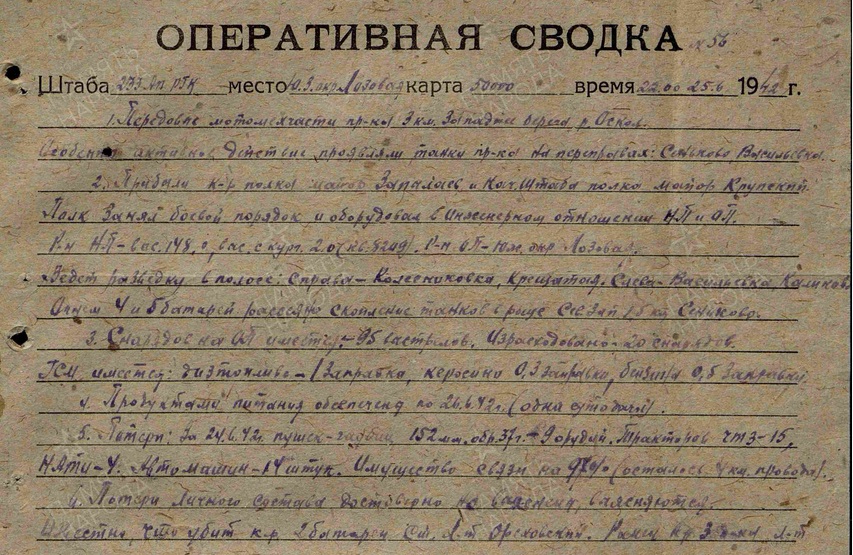 ОПЕРАТИВНАЯ СВОДКА № 56
Штаба 233 ап РГК место Ю.З. окр Лозовая карта 50000 время 22.00 25.6 1942 г.
1. Передовые мотомехчасти пр-ка 3 км. Западнее берега р. Оскол.
Особенно активное действие проявляли танки пр-ка на переправах: Сеньково Васильевка.
2. Прибыли к-р полка майор Запалаев и Нач. Штаба полка майор Крупский.
Полк Занял боевой порядок и оборудовал в инженерном отношении НП и ОП.
Р-н НП – выс. 148,0, выс. с кург. 2.0 (кв. 5209). Р-н ОП – Юж. окр Лозовая.
Ведет разведку в полосе: Справа – Колесниковка, Крещатая. Слева – Васильевка,
Огнем 4 и 5 батарей рассеяно скопление танков в роще Сев Зап км Сеньково.
3. Снарядов на ОП имеется – 95 выстрелов. Израсходовано – 20 снарядов.
ГСМ имеется: дизтопливо – 1 Заправка, керосина 0,3 заправки, бензина 0,5 Заправки
4. Продуктами питания обеспечены по 26.6.42 г. (одна сутодача).
5. Потери: За 24.6.42 г. пушек-гаубиц 152 мм. обр. 37 г. – 9 орудий. Тракторов ЧТЗ – 15,
НАТИ – 4. Автомашин – 14 штук. Имущество связи на (осталось 4 км. провода).
6. Потери личного состава достоверно не выяснены, выясняются
Известно, что убит к-р 2 батареи Ст. Л-т Ореховский. Ранен Л-т